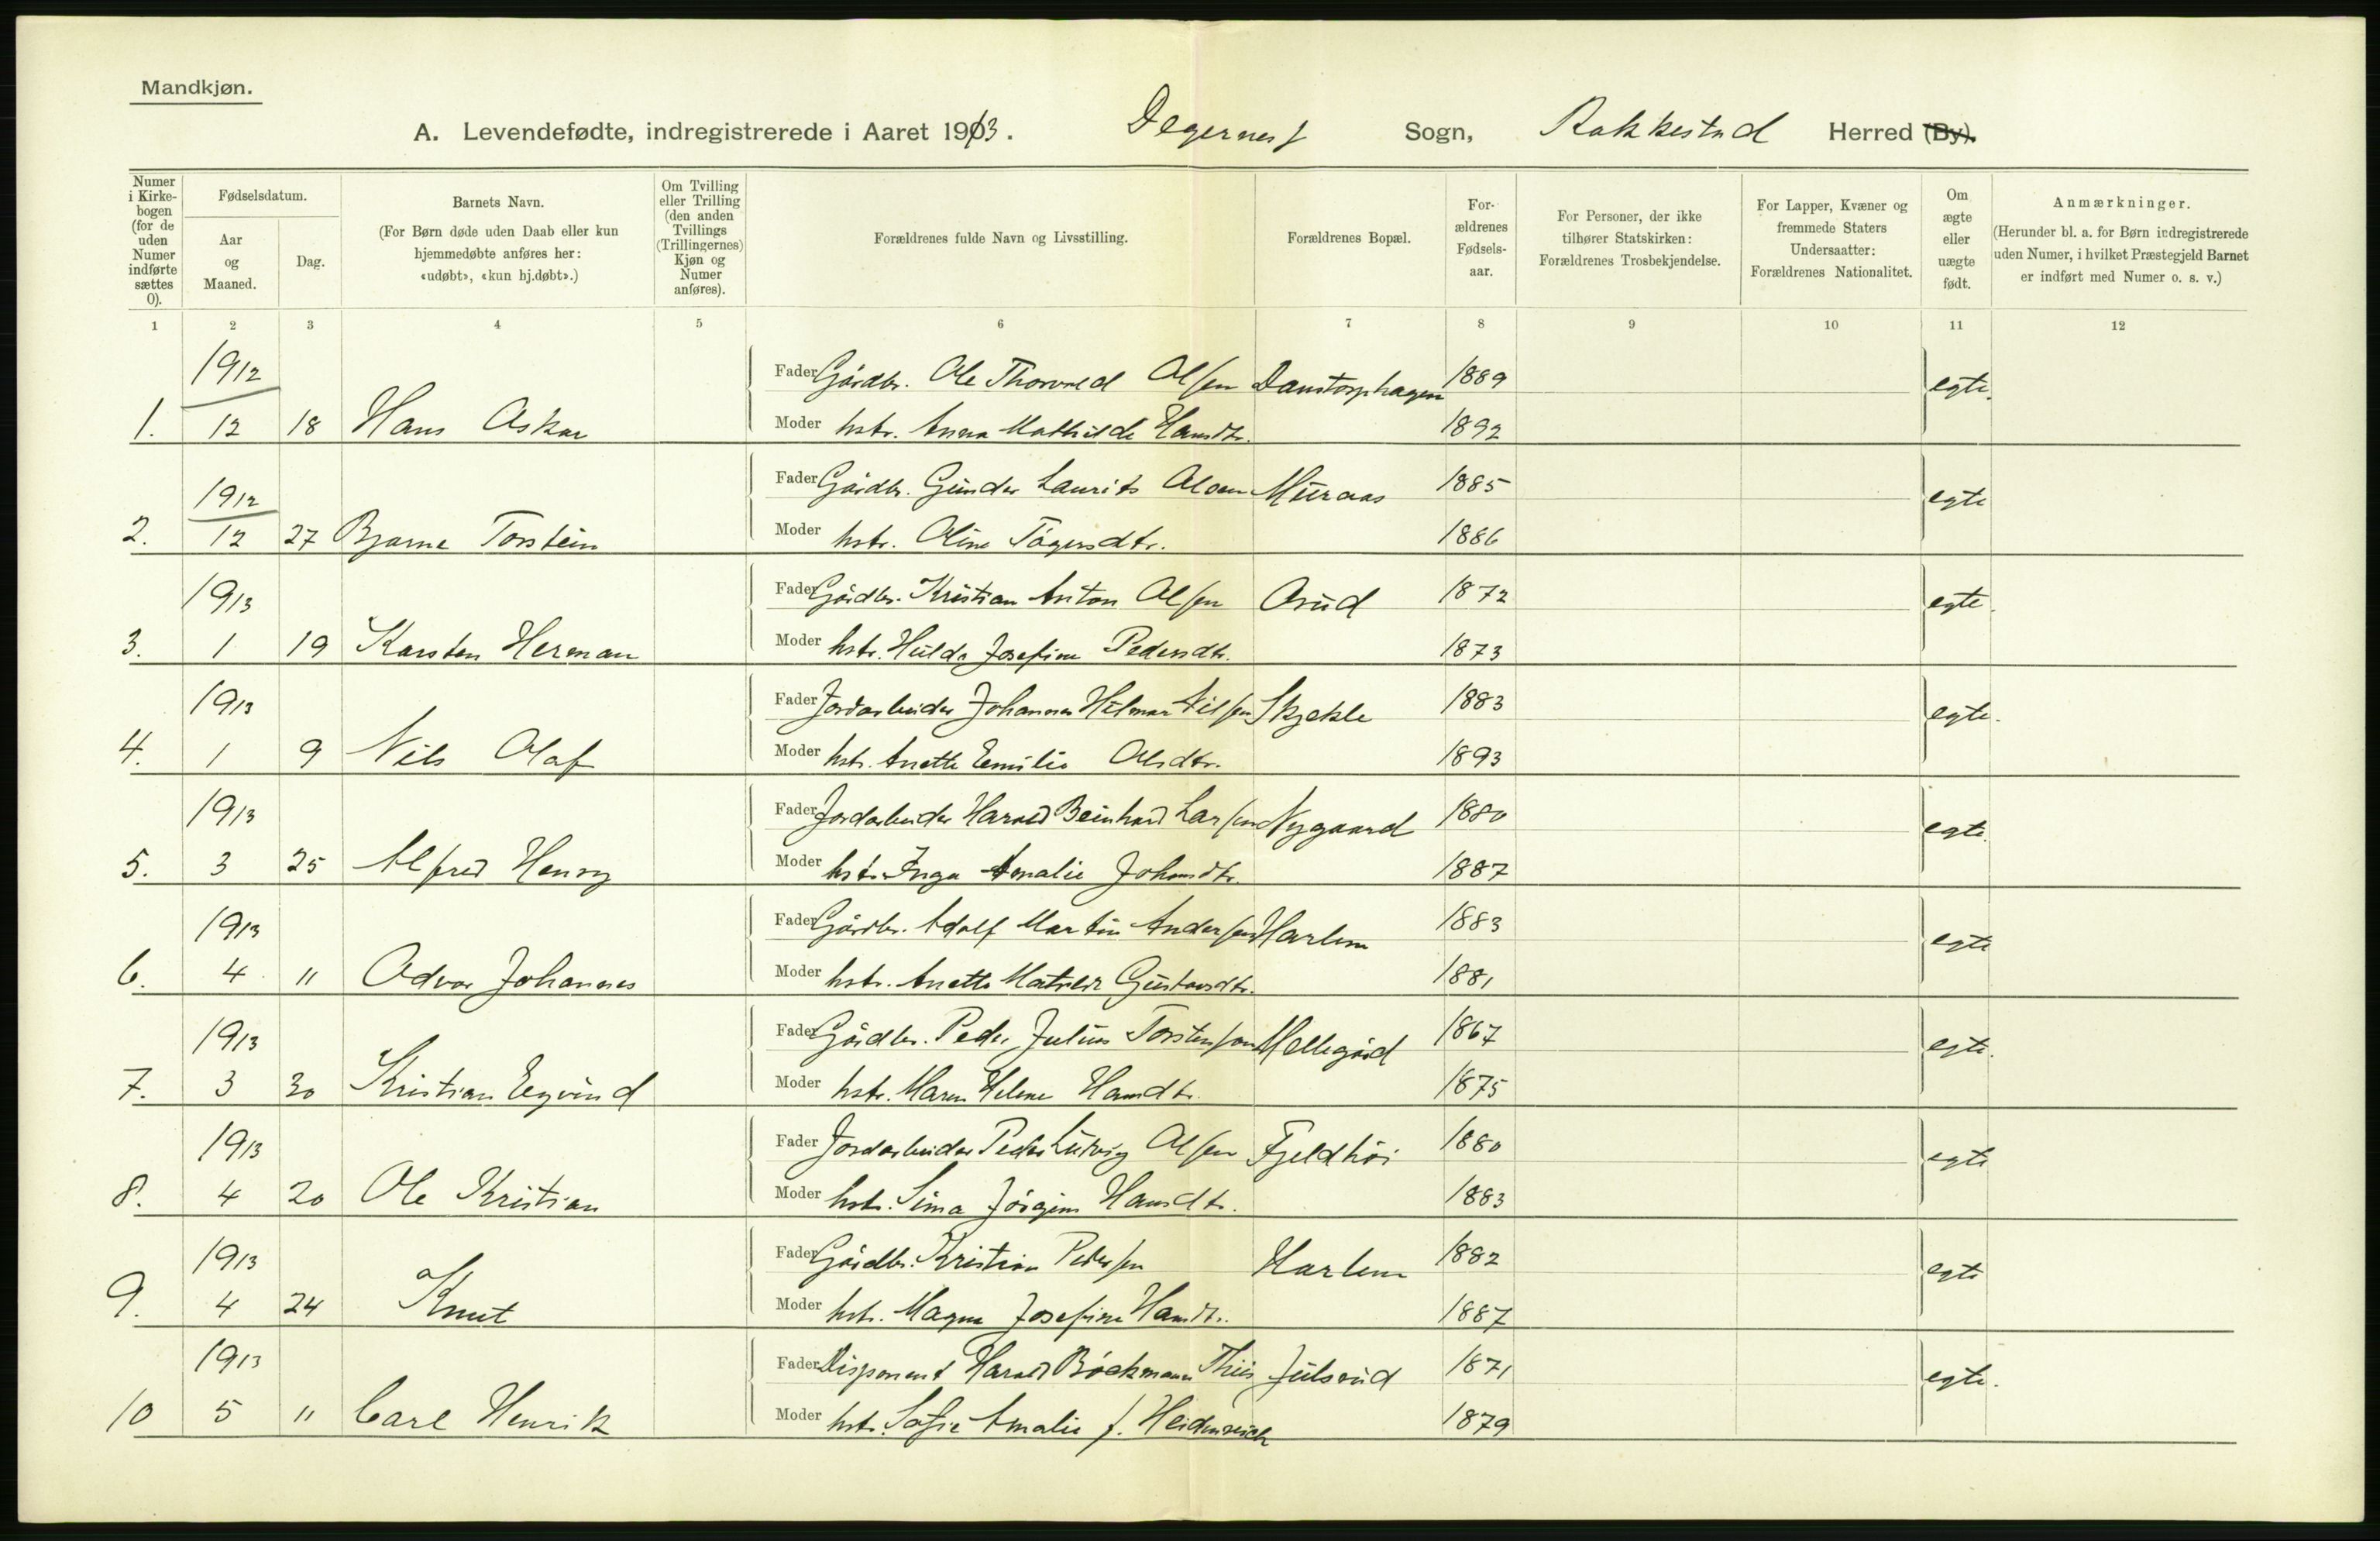 Mandkjøn.
A. Levendefødte, indregistrerede i Aaret 1913. Degernes Sogn, Rakkestad Herred (By).
Numer i Kirkebogen (for de uden Numer indførte sættes 0).
Fødselsdatum.
Aar og Maaned.
Dag.
Barnets Navn.
(For Børn døde uden Daab eller kun
hjemmedøbte anføres her:
«udøbt», «kun hj.døbt».)
Om Tvilling eller Trilling (den anden Tvillings (Trillingernes) Kjøn og Numer anføres).
Forældrenes fulde Navn og Livsstilling.
Forældrenes Bopæl.
For-
ældrenes
Fødsels-
aar.
For Personer, der ikke
tilhører Statskirken:
Forældrenes Trosbekjendelse.
For Lapper, Kvæner og
fremmede Staters
Undersaatter:
Forældrenes Nationalitet.
Om
ægte
eller
uægte
født.
Anmærkninger.
(Herunder bl. a. for Børn indregistrerede
uden Numer, i hvilket Præstegjeld Barnet
er indført med Numer o. s. v.)
1 2 3 4 5 6 7 8 9 10 11 12
1912 Fader Gårdbr. Ole Thorvald Olsen Danstorphagen 1889 egte.
1. 12 18 Hans Oskar Moder hstr. Anna Mathilde Hansdtr. 1892
1912 Fader Gårdbr. Gunder Laurits Olsen Muraas 1885 egte
2. 12 27 Bjarne Torstein Moder hstr. Oline Tågersdtr. 1886
1913 Fader Gårdbr. Kristian Anton Olsen Orud 1872 egte.
3. 1 19 Karsten Herman Moder hstr. Hulda Josefine Pedersdtr. 1873
1913 Fader Jordarbeider Johannes Hilmar Nilsen Skjekle 1883 egte.
4. 1 9 Nils Olaf Moder hstr. Anette Emilie Olsdtr. 1893
1913 Fader Jordarbeider Harald Beinhard Larsen Nygaard 1880 egte.
5. 3 25 Alfred Henry Moder hstr. Inga Amalie Johansdtr. 1887
1913 Fader Gårdbr. Adolf Martin Andersen Harlem 1883 egte
6. 4 11 Odvar Johannes Moder hstr. Anette Matilde Gustavsdtr. 1881
1913 Fader Gårdbr. Peder Julius Torstensen Mellegård 1867 egte.
7. 3 30 Kristian Eyvind Moder hstr. Maren Helene Hansdtr. 1875
1913 Fader Jordarbeider Peder Ludvig Olsen Fjeldhöi 1880 egte
8. 4 20 Ole Kristian Moder hstr. Sina Jörgine Hansdtr. 1883
1913 Fader Gårdbr. Kristian Pedersen Harlem 1882 egte
9. 4 24 Knut Moder hstr. Magna Josefine Hansdtr. 1887
1913 Fader Disponent Harald Böckmann Thiis Julsrud 1871 egte.
10 5 11 Carl Henrik Moder hstr. Sofie Amalie f. Heidenreich 1879